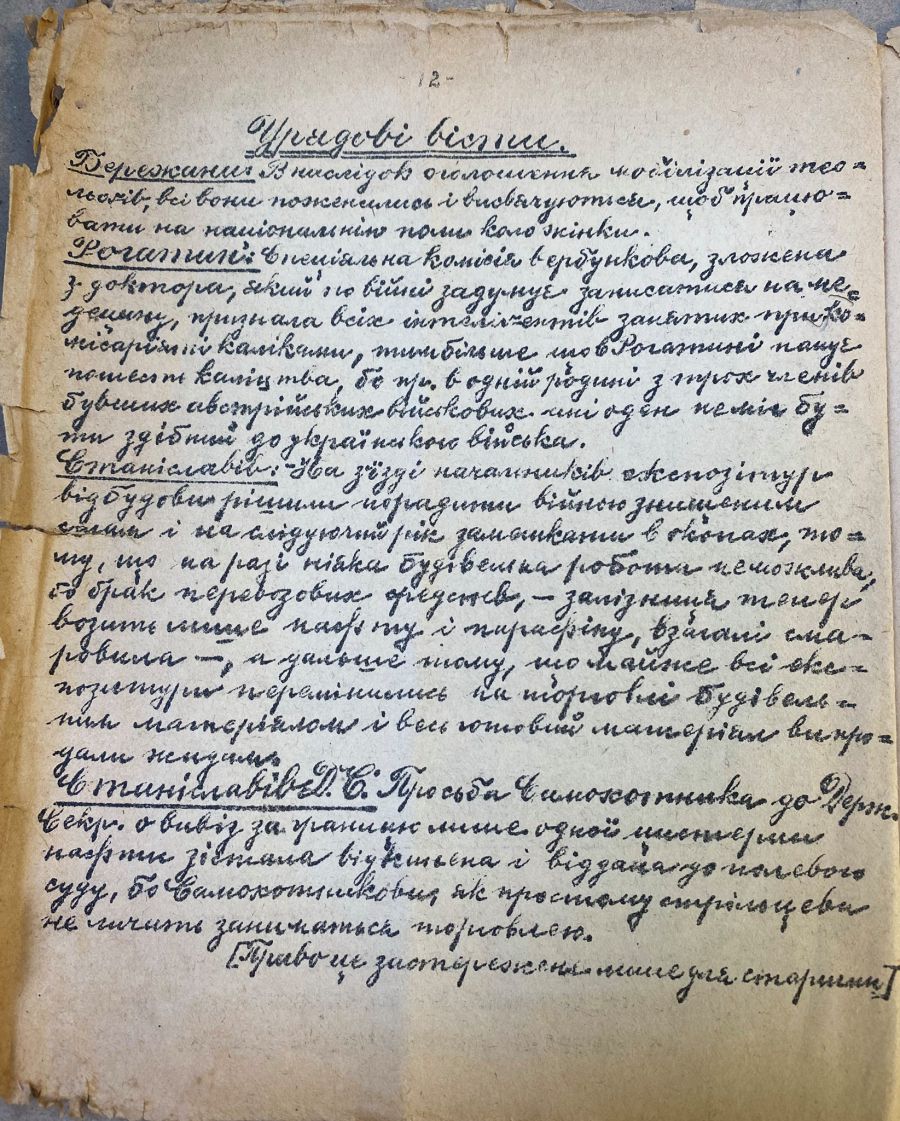 - 12 -
Урядові вісти.
Бережани: В наслідок оголошення мобілізації тео=
льогів, всі вони поженились і висвячуються, щоб працю=
вати на національнім поли коло жінки.
Рогатин: Спеціяльна комісія вербункова, зложена
з доктора, який по війні задумує записатися на ме=
децину, признала всіх інтелігентів занятих при ко=
місаріяті каліками, тимбільше що в Рогатині панує
пошесть каліцтва, бо пр. в одній родині з трох членів
бувших австрійських військових ані оден не міг бу=
ти здібний до українського війська.
Станіславів: На зїзді начальників експозітур
відбудови рішили порадити війною знищеним
селам і на слідуючий рік замешкати в окопах, то=
му, що на разі ніяка будівельна робота неможлива,
бо брак перевозових средств, — залізниця тепер
возить лише нафту і парафіну, взагалі сма-
ровила —, а дальше тому, що майже всі екс-
позітури перемінились на торговлі будівель-
ним матеріялом і весь готовий матеріял випро=
дали жидам.
Станіславів Д. С.: Просьба Самохотника до Держ.
Секр. о вивіз за границю лише одної цистерни
нафти зістала відкинена і віддана до полевого
суду, бо Самохотникови, як простому стрільцеви
не личить заниматься торговлею.
[Право це застережене лише для старшин]